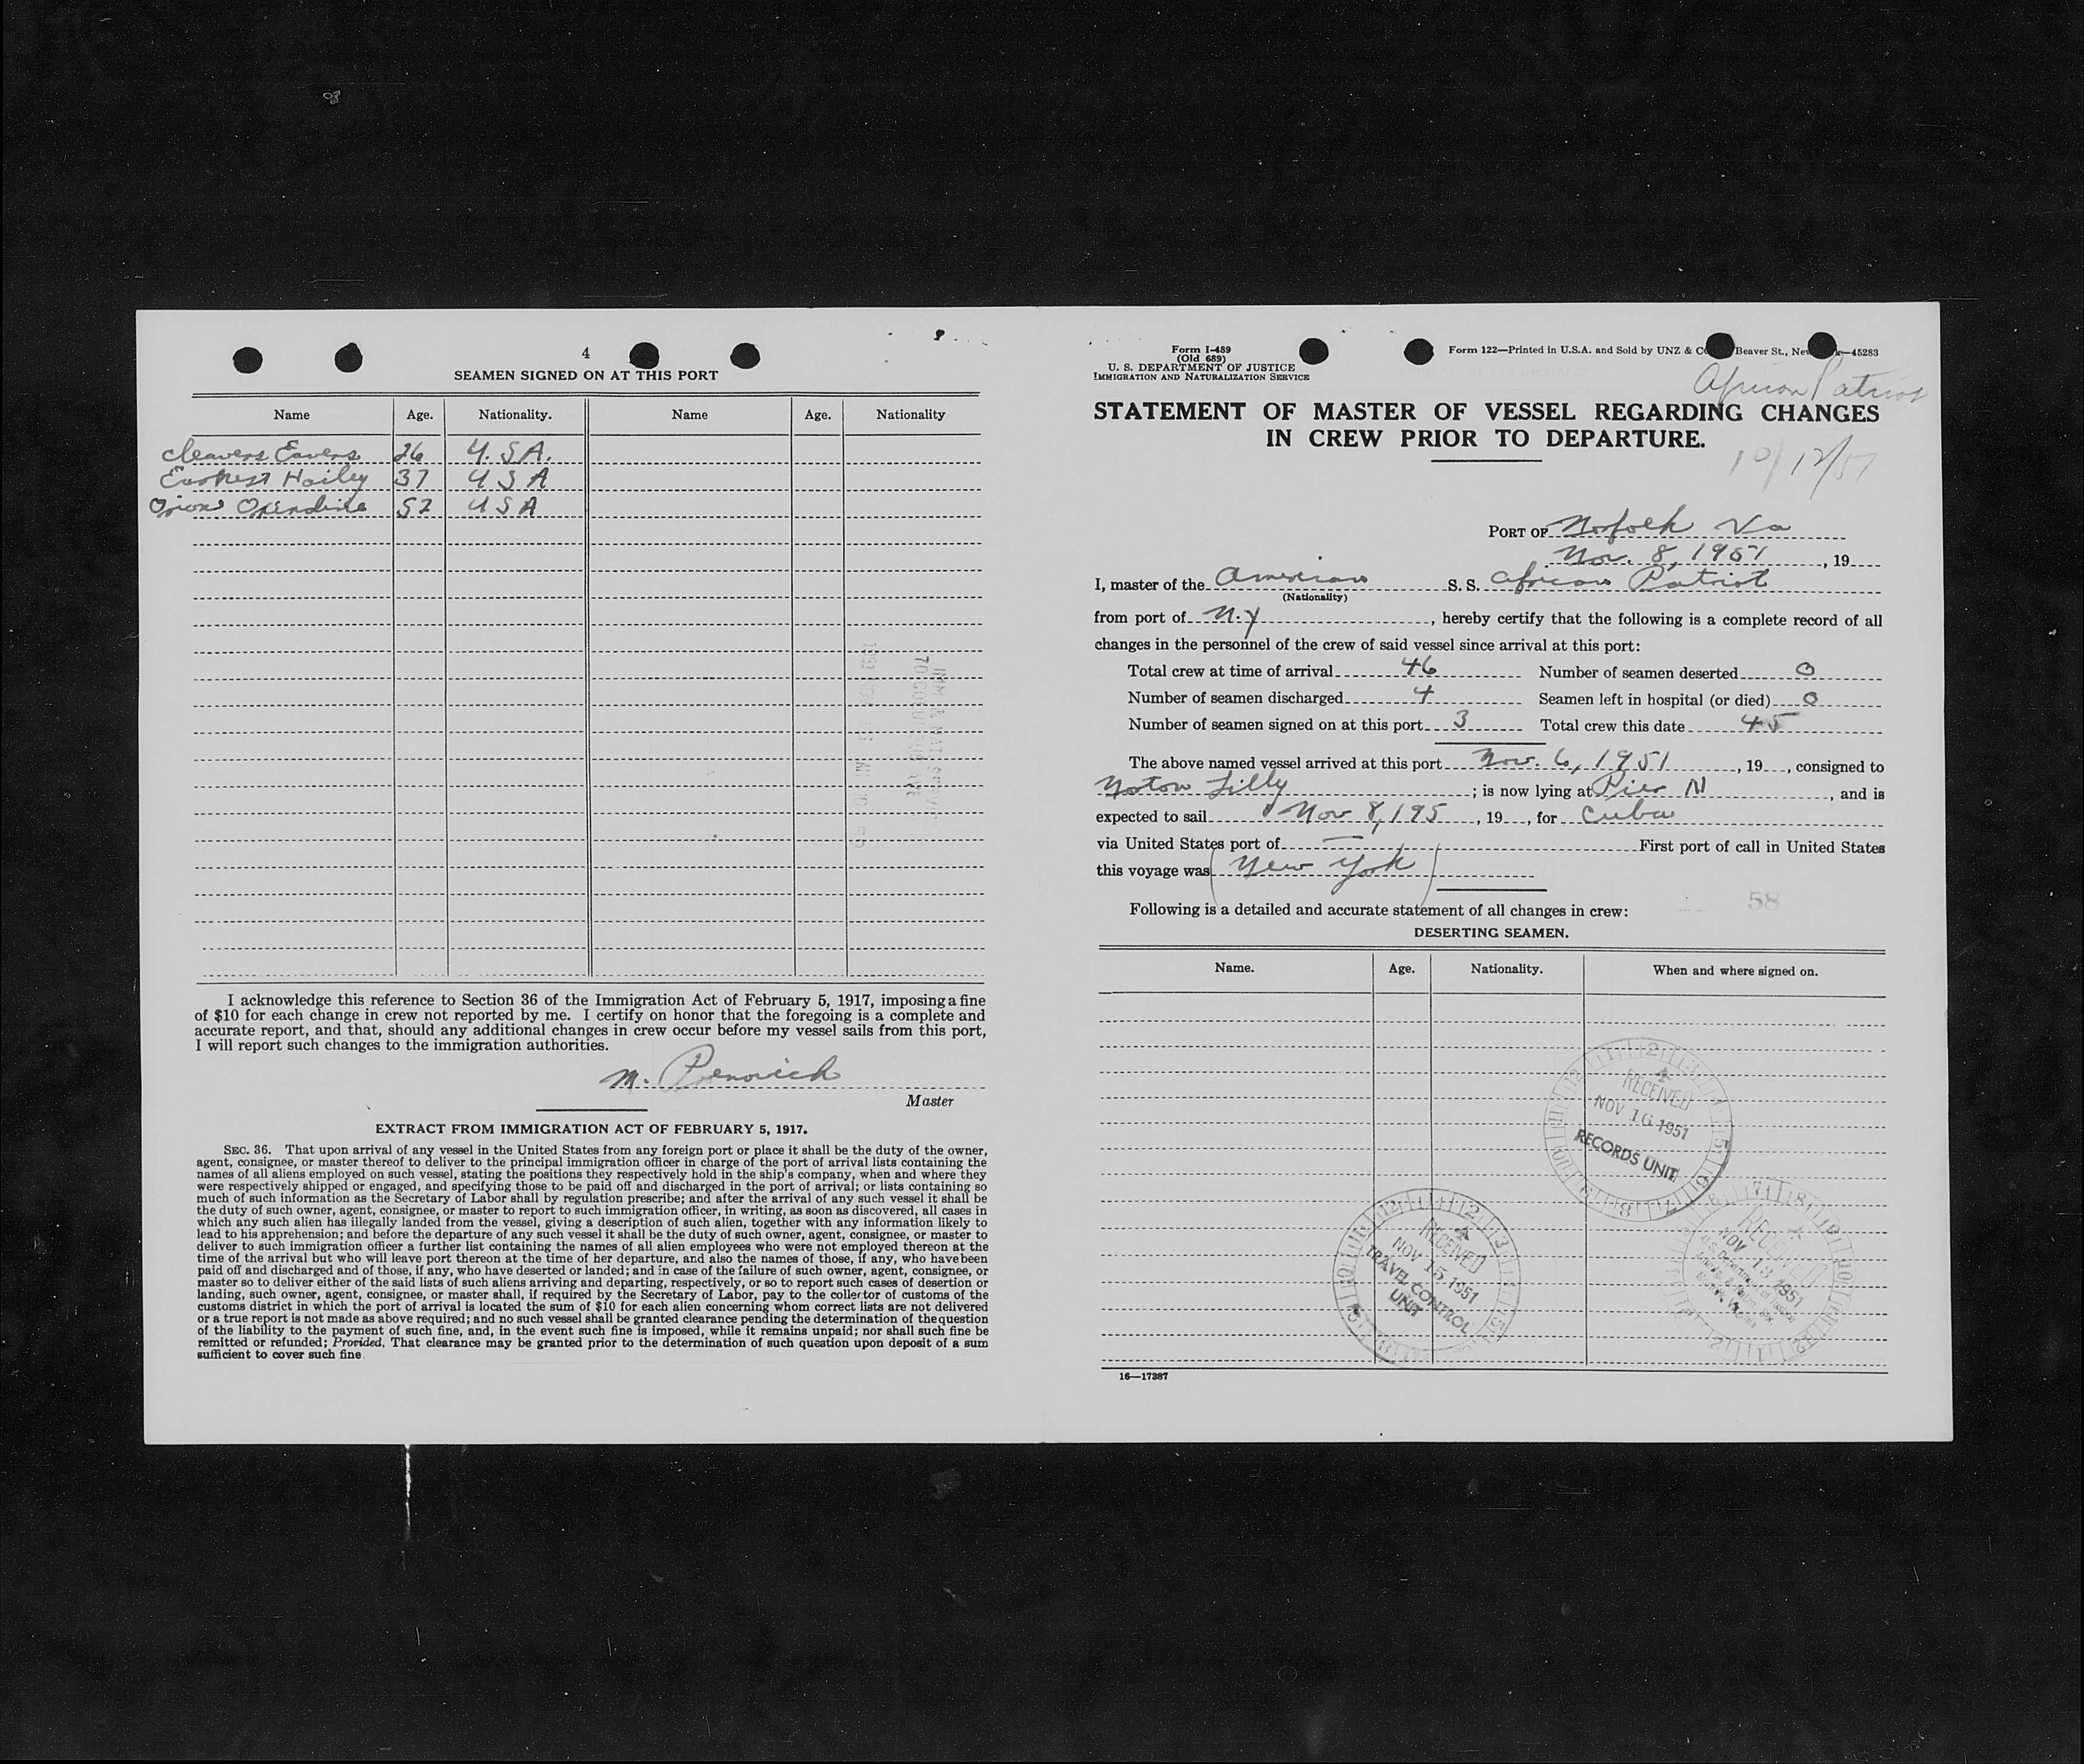 4
SEAMEN SIGNED ON AT THIS PORT
Name Age. Nationality. Name Age. Nationality
Cleavers Eavers 26 U.S.A.
Hailey 37 USA
Orion 52 USA
I acknowledge this reference to Section 36 of the Immigration Act of February 5, 1917, imposing a fine
of $10 for each change in crew not reported by me. I certify on honor that the foregoing is a complete and
accurate report, and that, should any additional changes in crew occur before my vessel sails from this port,
I will report such changes to the immigration authorities.
M. Penovich
Master
EXTRACT FROM IMMIGRATION ACT OF FEBRUARY 5, 1917.
SEC. 36. That upon arrival of any vessel in the United States from any foreign port or place it shall be the duty of the owner,
agent, consignee, or master thereof to deliver to the principal immigration officer in charge of the port of arrival lists containing the
names of all aliens employed on such vessel, stating the positions they respectively hold in the ship's company, when and where they
were respectively shipped or engaged, and specifying those to be paid off and discharged in the port of arrival; or lists containing so
much of such information as the Secretary of Labor shall by regulation prescribe; and after the arrival of any such vessel it shall be
the duty of such owner, agent, consignee, or master to report to such immigration officer, in writing, as soon as discovered, all cases in
which any such alien has illegally landed from the vessel, giving a description of such alien, together with any information likely to
lead to his apprehension; and before the departure of any such vessel it shall be the duty of such owner, agent, consignee, or master to
deliver to such immigration officer a further list containing the names of all alien employees who were not employed thereon at the
time of the arrival but who will leave port thereon at the time of her departure, and also the names of those, if any, who have been
paid off and discharged and of those, if any, who have deserted or landed; and in case of the failure of such owner, agent, consignee, or
master so to deliver either of the said lists of such aliens arriving and departing, respectively, or so to report such cases of desertion or
landing, such owner, agent, consignee, or master shall, if required by the Secretary of Labor, pay to the collector of customs of the
customs district in which the port of arrival is located the sum of $10 for each alien concerning whom correct lists are not delivered
or a true report is not made as above required; and no such vessel shall be granted clearance pending the determination of the question
of the liability to the payment of such fine, and, in the event such fine is imposed, while it remains unpaid; nor shall such fine be
remitted or refunded; Provided, That clearance may be granted prior to the determination of such question upon deposit of a sum
sufficient to cover such fine.
Form I-489
(Old 689)
U. S. DEPARTMENT OF JUSTICE
IMMIGRATION AND NATURALIZATION SERVICE
Form 122—Printed in U.S.A. and Sold by UNZ & C Beaver St., New —45283
African Patriot
STATEMENT OF MASTER OF VESSEL REGARDING CHANGES
IN CREW PRIOR TO DEPARTURE.
10/12/51
PORT OF Norfolk Va
Nov. 8, 1951, 19
I, master of the American S. S. African Patriot
(Nationality)
from port of N.Y, hereby certify that the following is a complete record of all
changes in the personnel of the crew of said vessel since arrival at this port:
Total crew at time of arrival 46 Number of seamen deserted 0
Number of seamen discharged 4 Seamen left in hospital (or died) 0
Number of seamen signed on at this port 3 Total crew this date 45
The above named vessel arrived at this port Nov. 6, 1951, 19, consigned to
Noton Lilly; is now lying at Pier N, and is
expected to sail Nov 8, 195, 19, for Cuba
via United States port of — First port of call in United States
this voyage was (New York)
58
Following is a detailed and accurate statement of all changes in crew:
DESERTING SEAMEN.
Name. Age. Nationality. When and where signed on.
RECEIVED
NOV 16 1951
RECORDS UNIT
RECEIVED
NOV 15 1951
TRAVEL CONTROL
UNIT
RECEIVED
NOV 13 1951
16—17387